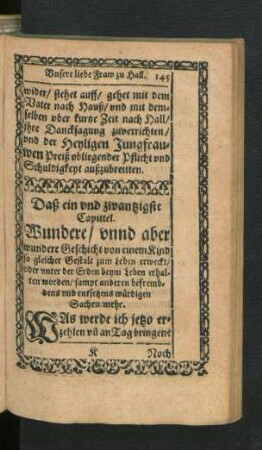 Vnsere liebe Fraw zu Hall. 145
wider/ stehet auff/ gehet mit dem
Vater nach Hauß/ vnd mit dem-
selben vber kurtze Zeit nach Hall/
jhre Dancksagung zuverrichten/
vnd der Heyligen Jungfrau-
wen Preiß obliegender Pflicht vnd
Schuldigkeyt außzubreiten.
Daß ein vnd zwantzigste
Capittel.
Wundere/ vnnd aber
wundere Geschicht von einem Kind
so gleicher Gestalt zum Leben erweckt/
oder vnter der Erden beym Leben erhal-
ten worden/ sampt anderen befremb-
dens vnd entsetzens würdigen
Sachen mehr.
WAs werde ich jetzo er-
zehlen vñ an Tag bringen?
K Noch